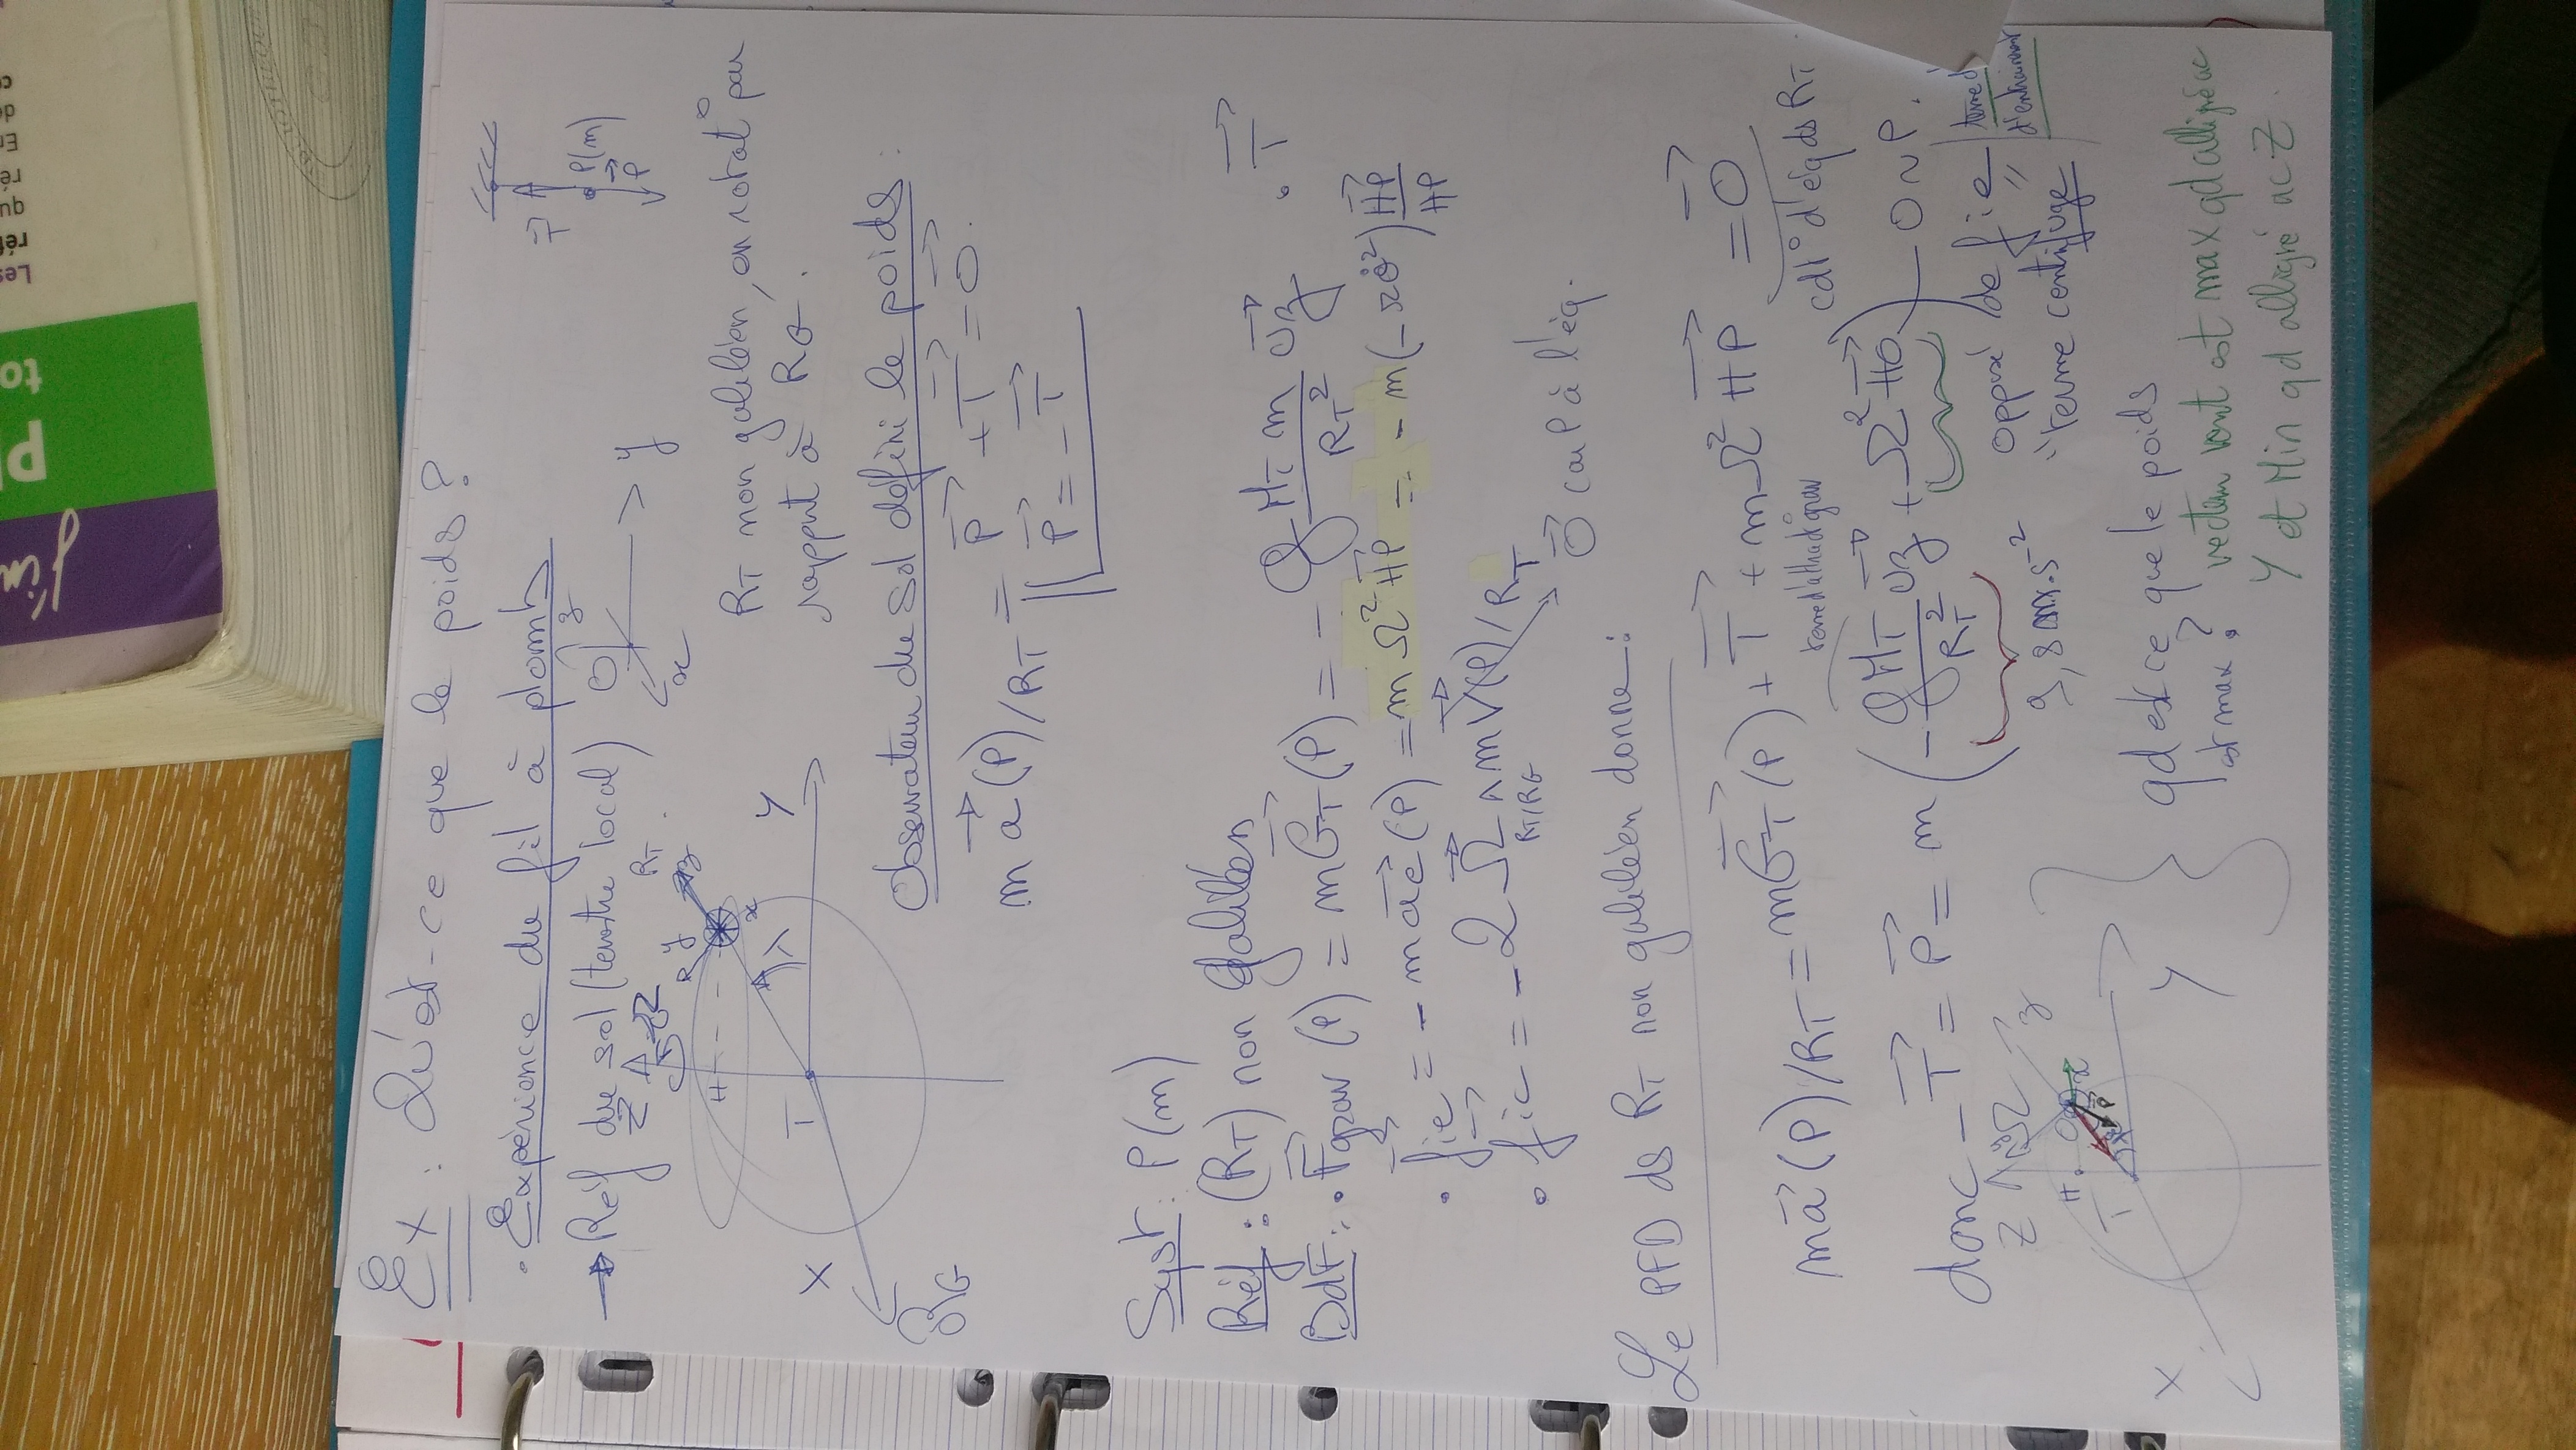 Ex : Qu'est-ce que le poids ?
• Expérience du fil à plomb
→ Réf du sol (terrestre local) RT.
O z y x
T P(m) P
Z Ω H P y z x λ T Y X RG
RT non galiléen, en rotat° par
rapport à RG.
Observateur du sol défini le poids :
m a(P)/RT = P + T = 0.
P = -T
Syst : P(m)
Réf : (RT) non galiléen
BdF : • Fgrav (P) = m GT (P) = - G MT m / RT² uz • T
• fie = - m ae (P) = m Ω² HP = - m (- r θ̇²) HP/HP
• fic = - 2 Ω RT/RG ∧ m V(P)/RT 0 car P à l'éq.
Le PFD ds RT non galiléen donne :
m a (P)/RT = m GT (P) + T + m Ω² HP = 0
cdt° d'éq ds RT
donc - T = P = m (- G MT / RT² uz + Ω² HO)
9,8 m.s⁻²
opposé de fie
"terme centrifuge"
terme d'entrainement
Z Ω z H T x P X Y
qd est ce que le poids
est max ?
vecteur vont est max qd alligné ac
Y et Min qd alligné ac Z.
Les
réf
qu
ré
En
de
to